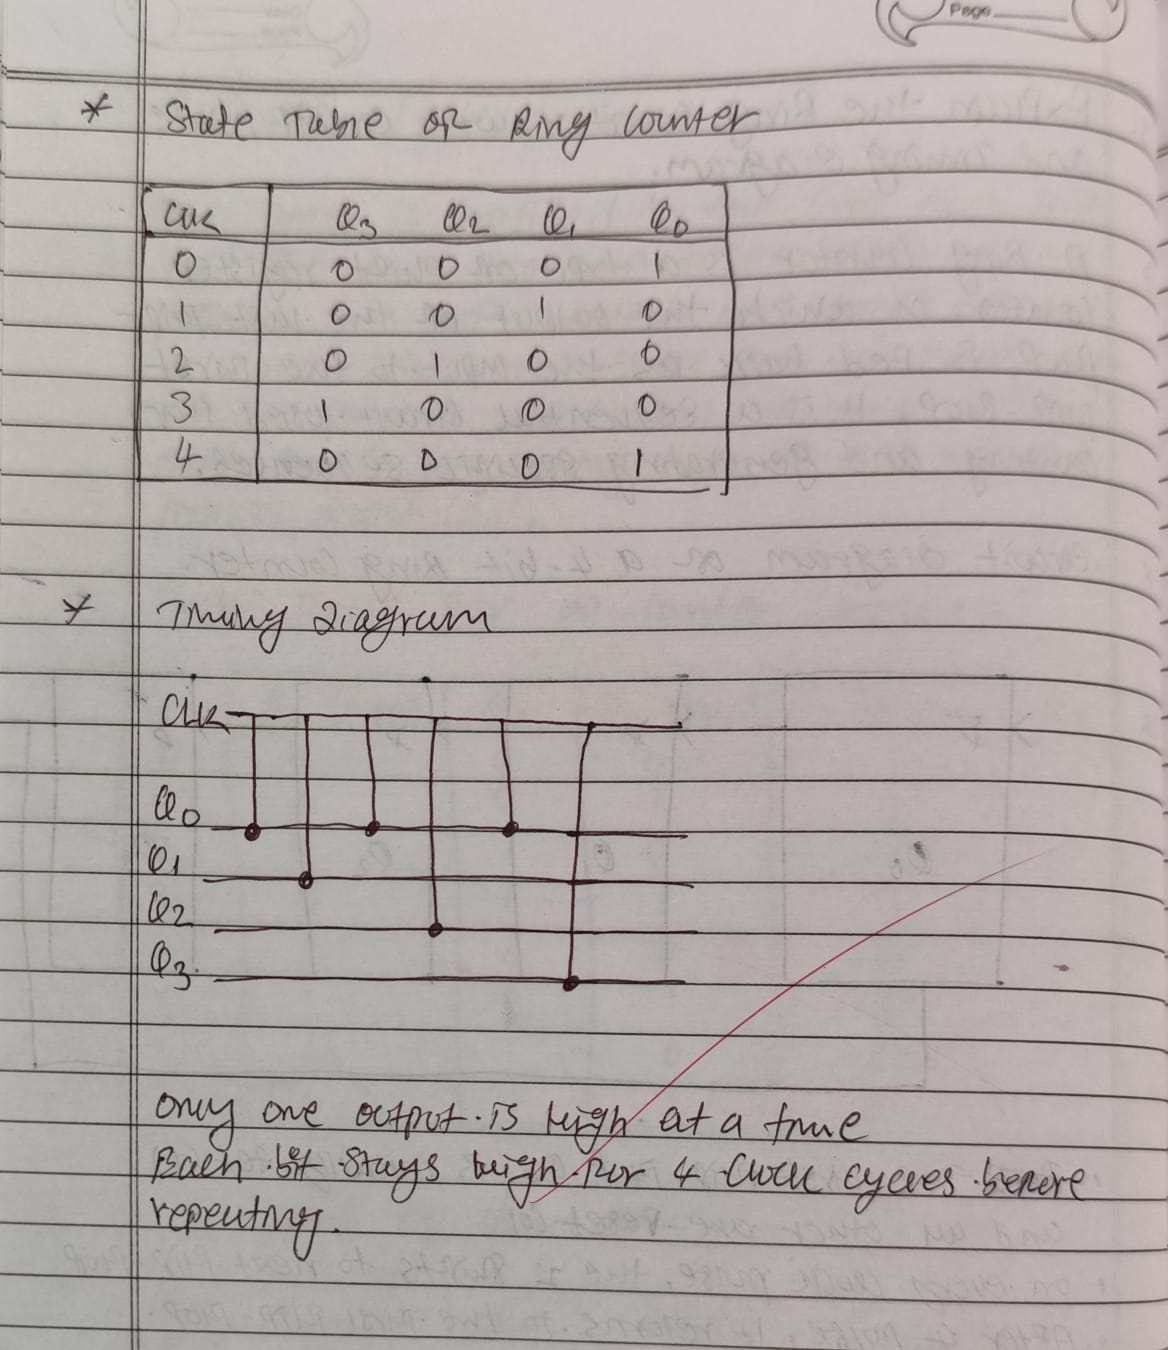 Page
* State Table of Ring Counter
CLK Q3 Q2 Q1 Q0
0 0 0 0 1
1 0 0 1 0
2 0 1 0 0
3 1 0 0 0
4 0 0 0 1
* Timing Diagram
CLK
Q0
Q1
Q2
Q3
only one output is high at a time
Each bit stays high for 4 clock cycles before
repeating.